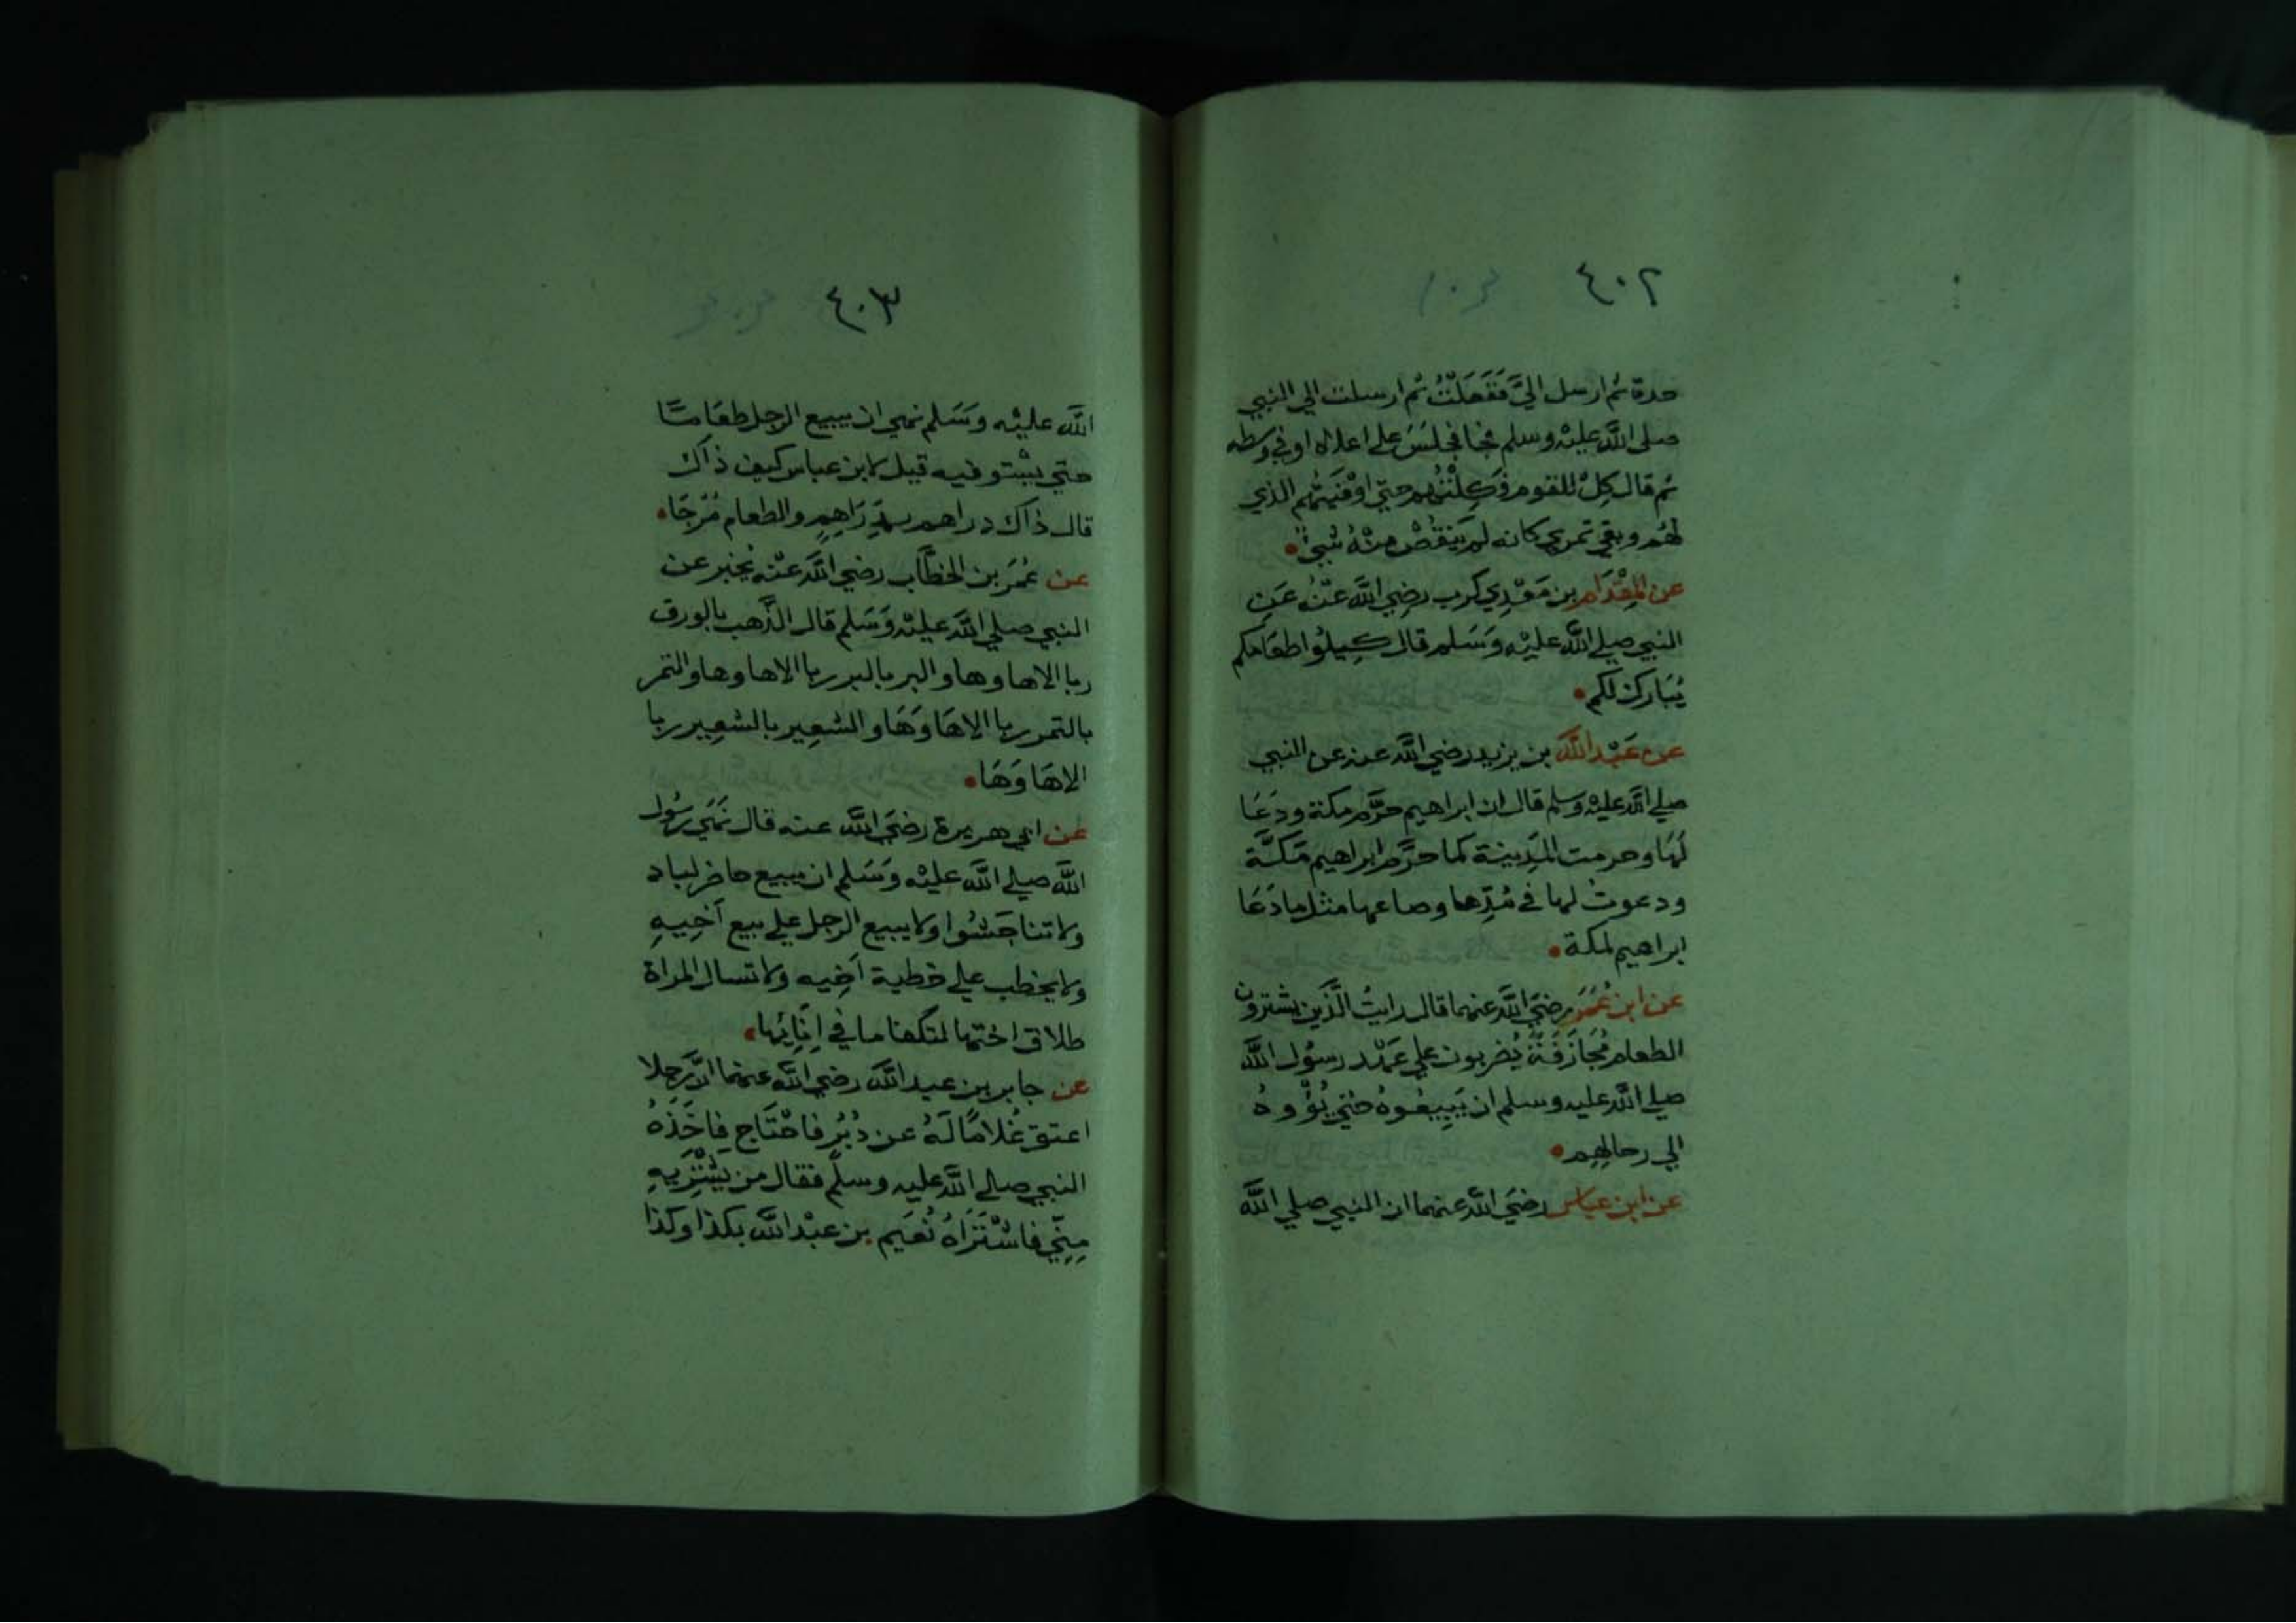 ٤٠٢
حدة ثم ارسل اليَّ فَفَعَلْتُ ثم ارسلت الي النبي
صلى اللّه عليْه وسلم فجا فجلسَ على اعلاه او في وسطه
ثم قال كِلْ للقوم فَكِلْتُهم حتى اوْفَيتُهم الذي
لهُم وبقي تمري كانه لم يَنقُصْ مِنْهُ شيئ
عن المِقْدَام بن مَعْدِي كرب رضِي اللَّه عنْهُ عَنِ
النبي صلي اللَّه عليْه وَسَلم قال كِيلُوا طعَامكم
يُبَارك لكم
عن عَبْد اللَّه بن يزيد رضي اللَّه عنه عن النبي
صلي اللَّه عليْه وسلم قال ان ابراهيم حرَّم مكة ودَعَا
لَهَا وحرمت المَدِينة كما حرَّم ابراهيم مَكَّة
ودعوتُ لها في مُدِّها وصاعها مثل ما دَعَا
ابراهيم لمكة
عن ابن عُمَرَ رضيَ اللَّه عنهما قال رايتُ الَّذين يشترون
الطعام مُجَازَفَةً يُضربون علي عَهْد رسُول اللَّه
صلي اللَّه عليه وسلم ان يَبِيعُوهُ حتي يُؤْوهُ
الي رحالِهِم
عن ابن عباس رضيَ اللَّه عنهما ان النبي صلي اللَّه
٤٠٣
اللَّه عليْه وسَلم نهي ان يبيع الرجل طعَامًا
حتي يستوفيه قيل لابن عباس كيف ذاك
قال ذاك دراهم بِدَرَاهِمٍ والطعام مُرْجًا
عن عُمَر بن الخطَّاب رضي اللَّه عنْه يُخبر عن
النبي صلي اللَّه عليْه وَسَلم قال الذَّهب بالورق
ربا الاها وها والبر بالبر ربا الاها وها والتمر
بالتمر ربا الاهَا وَهَا والشعِير بالشعِير ربا
الاهَا وَهَا
عن ابي هريرة رضيَ اللَّه عنه قال نَهَي رسُول
اللَّه صلي اللَّه عليْه وَسَلم ان يبيع حاضر لباد
ولا تناجَشُوا ولا يبيع الرجل علي بيع أخِيهِ
ولا يخطب علي خطبة أخِيه ولا تسال المراة
طلاق اختها لتكفا ما في إنَائِها
عن جابر بن عبد اللَّه رضي اللَّه عنهما انَّ رجلا
اعتق غُلامًا لَهُ عن دُبُرٍ فاحْتَاج فاخَذهُ
النبي صلي اللَّه عليه وسلَّم فقال من يَشْتَرِيهِ
مِنِّي فاشْتَرَاهُ نُعَيم بن عبْد اللَّه بكذا وكذا